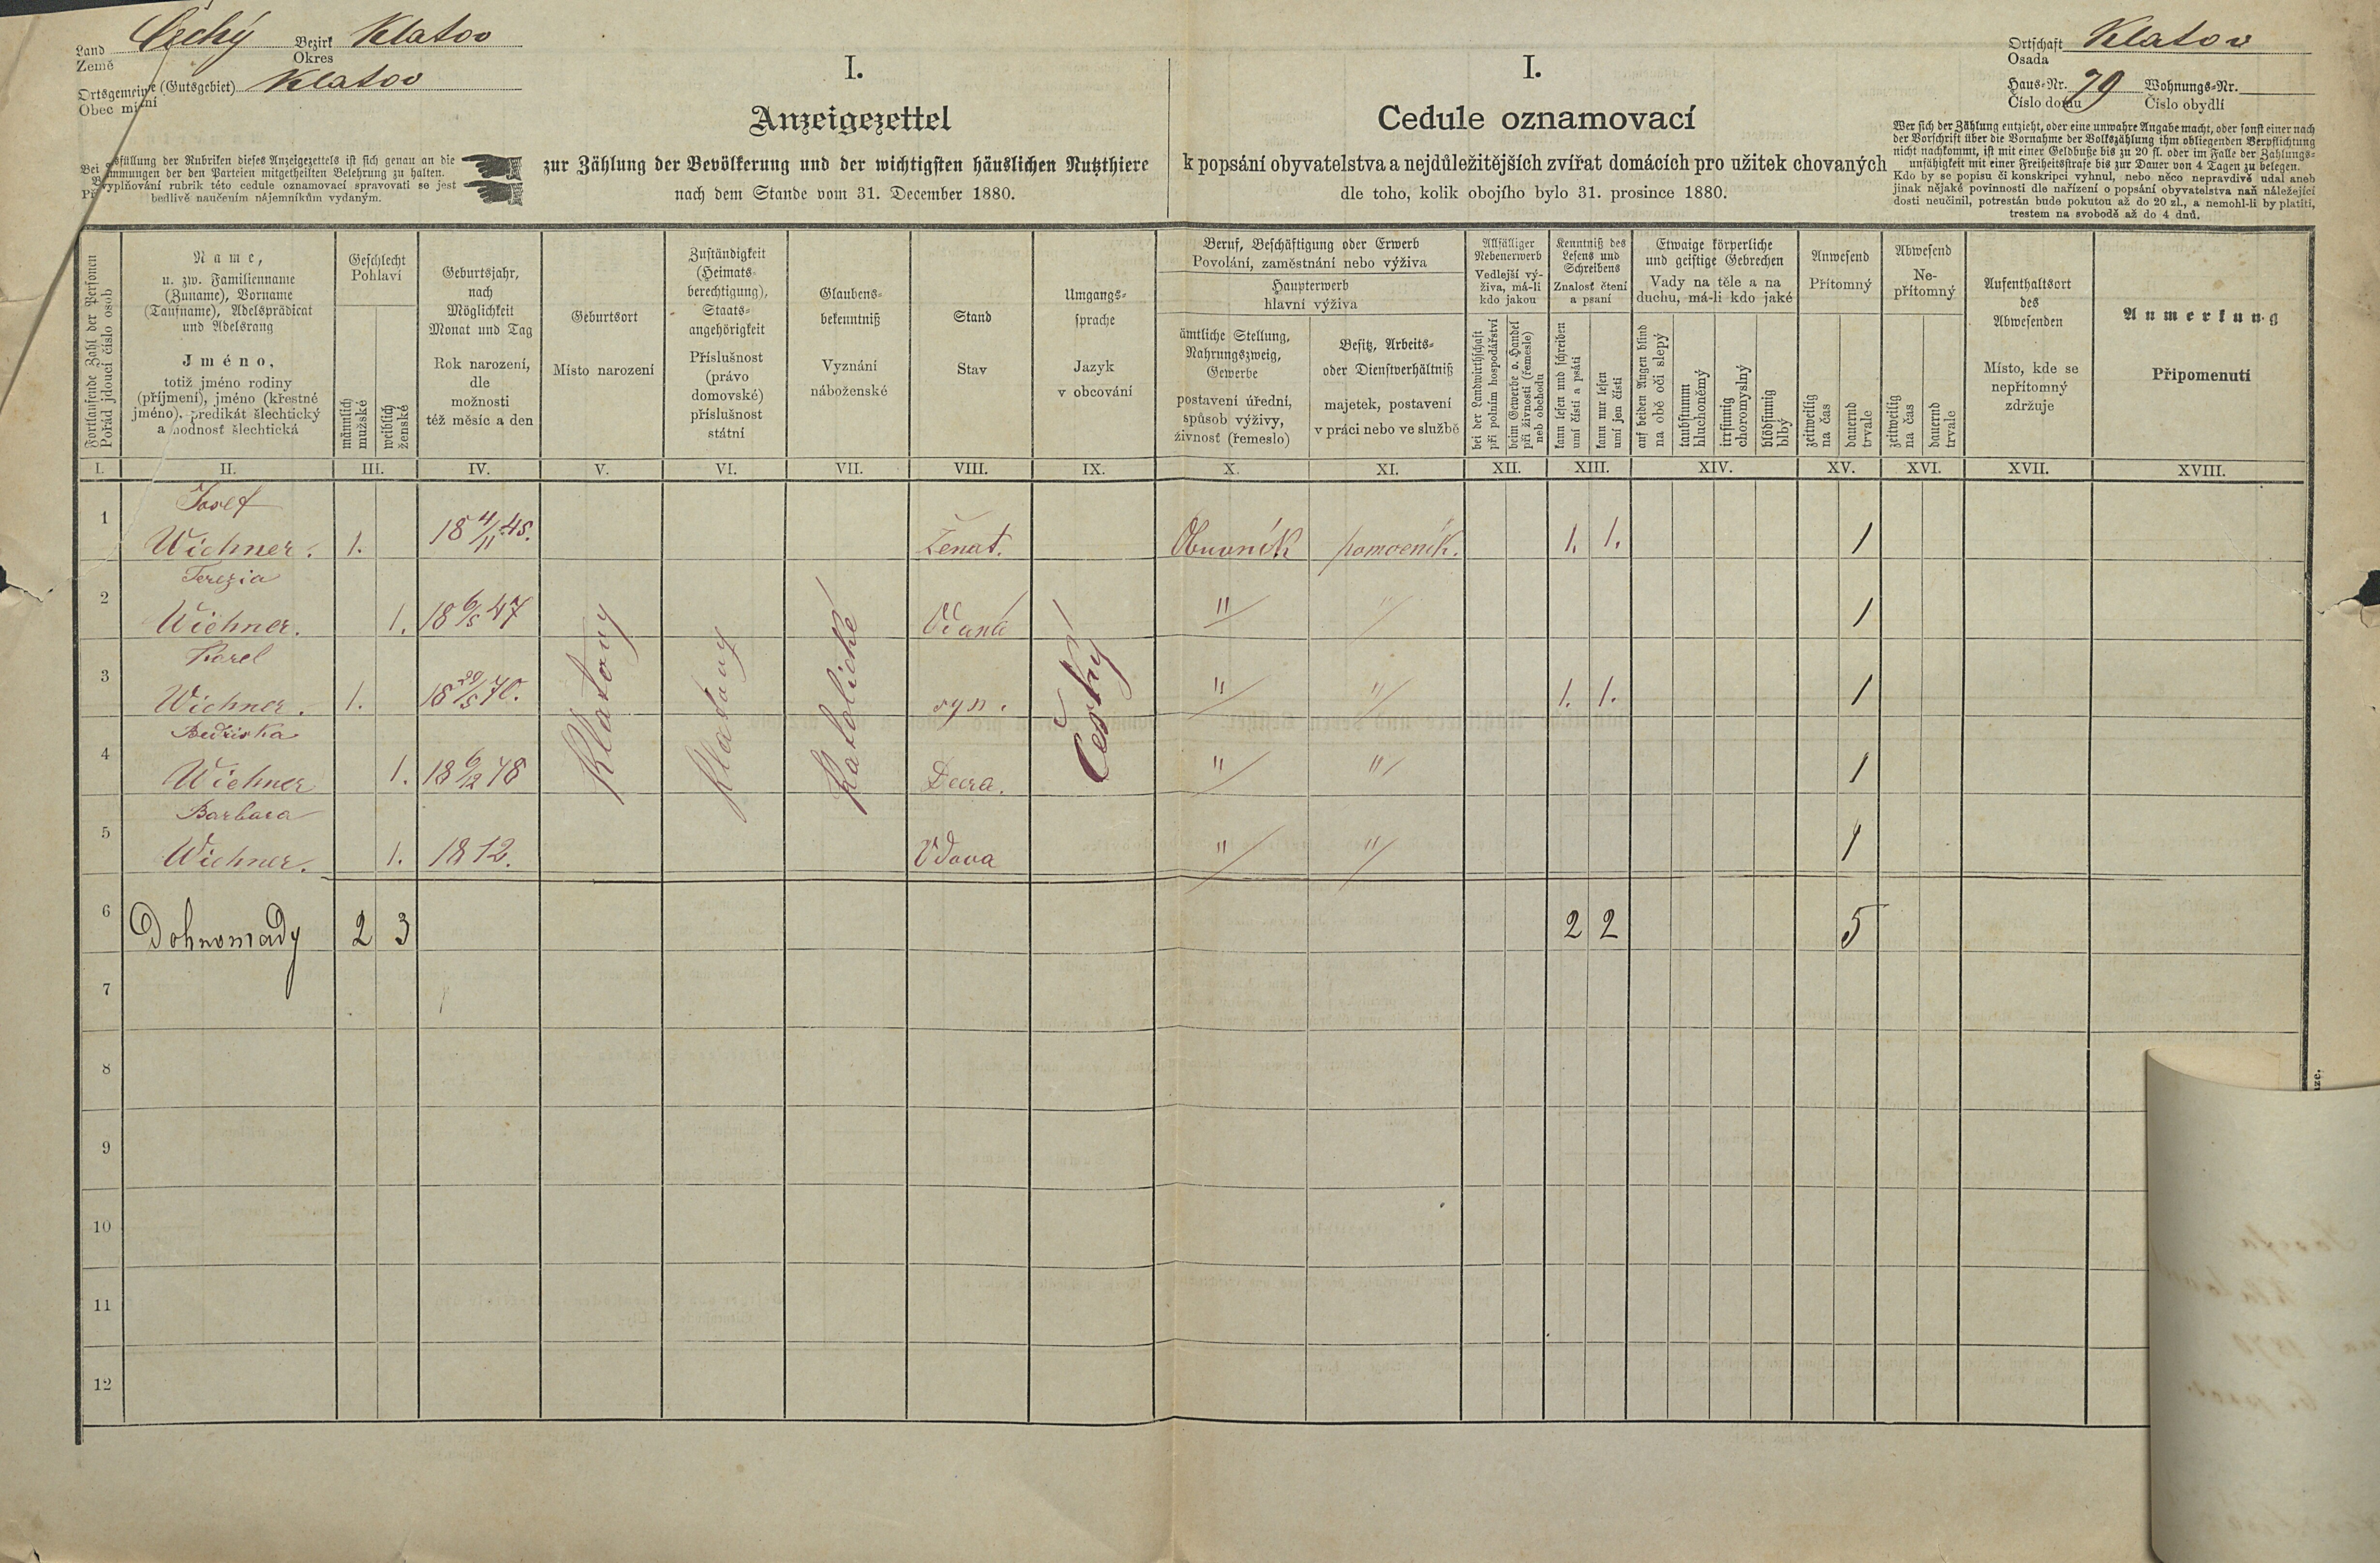 Land Čechý Bezirk Klatov
Země Okres
Ortsgemeinde (Gutsgebiet) Klatov
Obec místní
I.
Anzeigezettel
zur Zählung der Bevölkerung und der wichtigsten häuslichen Nutzthiere
nach dem Stande vom 31. December 1880.
Bei Ausfüllung der Rubriken dieses Anzeigezettels ist sich genau an die
Bestimmungen der den Parteien mitgetheilten Belehrung zu halten.
Při vyplňování rubrik této cedule oznamovací spravovati se jest
bedlivě naučením nájemníkům vydaným.
I.
Cedule oznamovací
k popsání obyvatelstva a nejdůležitějších zvířat domácích pro užitek chovaných
dle toho, kolik obojího bylo 31. prosince 1880.
Ortschaft Klatov
Osada
Haus-Nr. 79 Wohnungs-Nr.
Číslo domu Číslo obydlí
Wer sich der Zählung entzieht, oder eine unwahre Angabe macht, oder sonst einer nach
der Vorschrift über die Vornahme der Volkszählung ihm obliegenden Verpflichtung
nicht nachkommt, ist mit einer Geldbuße bis zu 20 fl. oder im Falle der Zahlungs-
unfähigkeit mit einer Freiheitsstrafe bis zur Dauer von 4 Tagen zu belegen.
Kdo by se popisu či konskripci vyhnul, nebo něco nepravdivě udal aneb
jinak nějaké povinnosti dle nařízení o popsání obyvatelstva naň náležející
dosti neučinil, potrestán bude pokutou až do 20 zl., a nemohl-li by platiti,
trestem na svobodě až do 4 dnů.
Fortlaufende Zahl der Personen
Pořád jdoucí číslo osob
Name,
u. zw. Familienname
(Zuname), Vorname
(Taufname), Adelsprädicat
und Adelsrang
Jméno,
totiž jméno rodiny
(příjmení), jméno (křestné
jméno), predikát šlechtický
a hodnosť šlechtická
Geschlecht
Pohlaví
männlich
mužské
weiblich
ženské
Geburtsjahr,
nach
Möglichkeit
Monat und Tag
Rok narození,
dle
možnosti
též měsíc a den
Geburtsort
Místo narození
Zuständigkeit
(Heimats-
berechtigung),
Staats-
angehörigkeit
Příslušnost
(právo
domovské)
příslušnost
státní
Glaubens-
bekenntniß
Vyznání
náboženské
Stand
Stav
Umgangs-
sprache
Jazyk
v obcování
Beruf, Beschäftigung oder Erwerb
Povolání, zaměstnání nebo výživa
Haupterwerb
hlavní výživa
ämtliche Stellung,
Nahrungszweig,
Gewerbe
postavení úřední,
spůsob výživy,
živnosť (řemeslo)
Besitz, Arbeits-
oder Dienstverhältniß
majetek, postavení
v práci nebo ve službě
Allfälliger
Nebenerwerb
Vedlejší vý-
živa, má-li
kdo jakou
bei der Landwirthschaft
při polním hospodářství
beim Gewerbe o. Handel
při živnosti (řemesle)
neb obchodu
Kenntniß des
Lesens und
Schreibens
Znalosť čtení
a psaní
kann lesen und schreiben
umí čísti a psáti
kann nur lesen
umí jen čísti
Etwaige körperliche
und geistige Gebrechen
Vady na těle a na
duchu, má-li kdo jaké
auf beiden Augen blind
na obě oči slepý
taubstumm
hluchoněmý
irrsinnig
choromyslný
blödsinnig
blbý
Anwesend
Přítomný
zeitweilig
na čas
dauernd
trvale
Abwesend
Ne-
přítomný
zeitweilig
na čas
dauernd
trvale
Aufenthaltsort
des
Abwesenden
Místo, kde se
nepřítomný
zdržuje
Anmerkung
Připomenutí
I. II. III. IV. V. VI. VII. VIII. IX. X. XI. XII. XIII. XIV. XV. XVI. XVII. XVIII.
1 Josef
Wichner. 1. 18 4/11 45. Ženat. Obuvník pomocník. 1. 1. 1
2 Terezia
Wichner. 1. 18 6/5 47 Vdaná " " 1
3 Karel
Wichner. 1. 18 29/5 70. syn. " " 1. 1. 1
4 Bedřiška
Wichner 1. 18 6/12 78 Dcera. " " 1
5 Barbara
Wichner. 1. 1812. Vdova " " 1
Klatovy
Klatovy
Katolické
Český
6 Dohromady 2 3 2 2 5
7
8
9
10
11
12